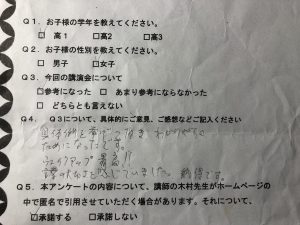 Q1. お子様の学年を教えてください。
□ 高1 □高2 □高3
Q2. お子様の性別を教えてください。
□ 男子 □女子
Q3. 今回の講演会について
□参考になった □ あまり参考にならなかった
□ どちらとも言えない
Q4. Q3について、具体的にご意見、ご感想などご記入ください
ためになったです。
ウェイクアップ 最高!!
感じていました。納得です。
Q5. 本アンケートの内容について、講師の木村先生がホームページの
中で匿名で引用させていただく場合があります。それについて、
□承諾する □承諾しない